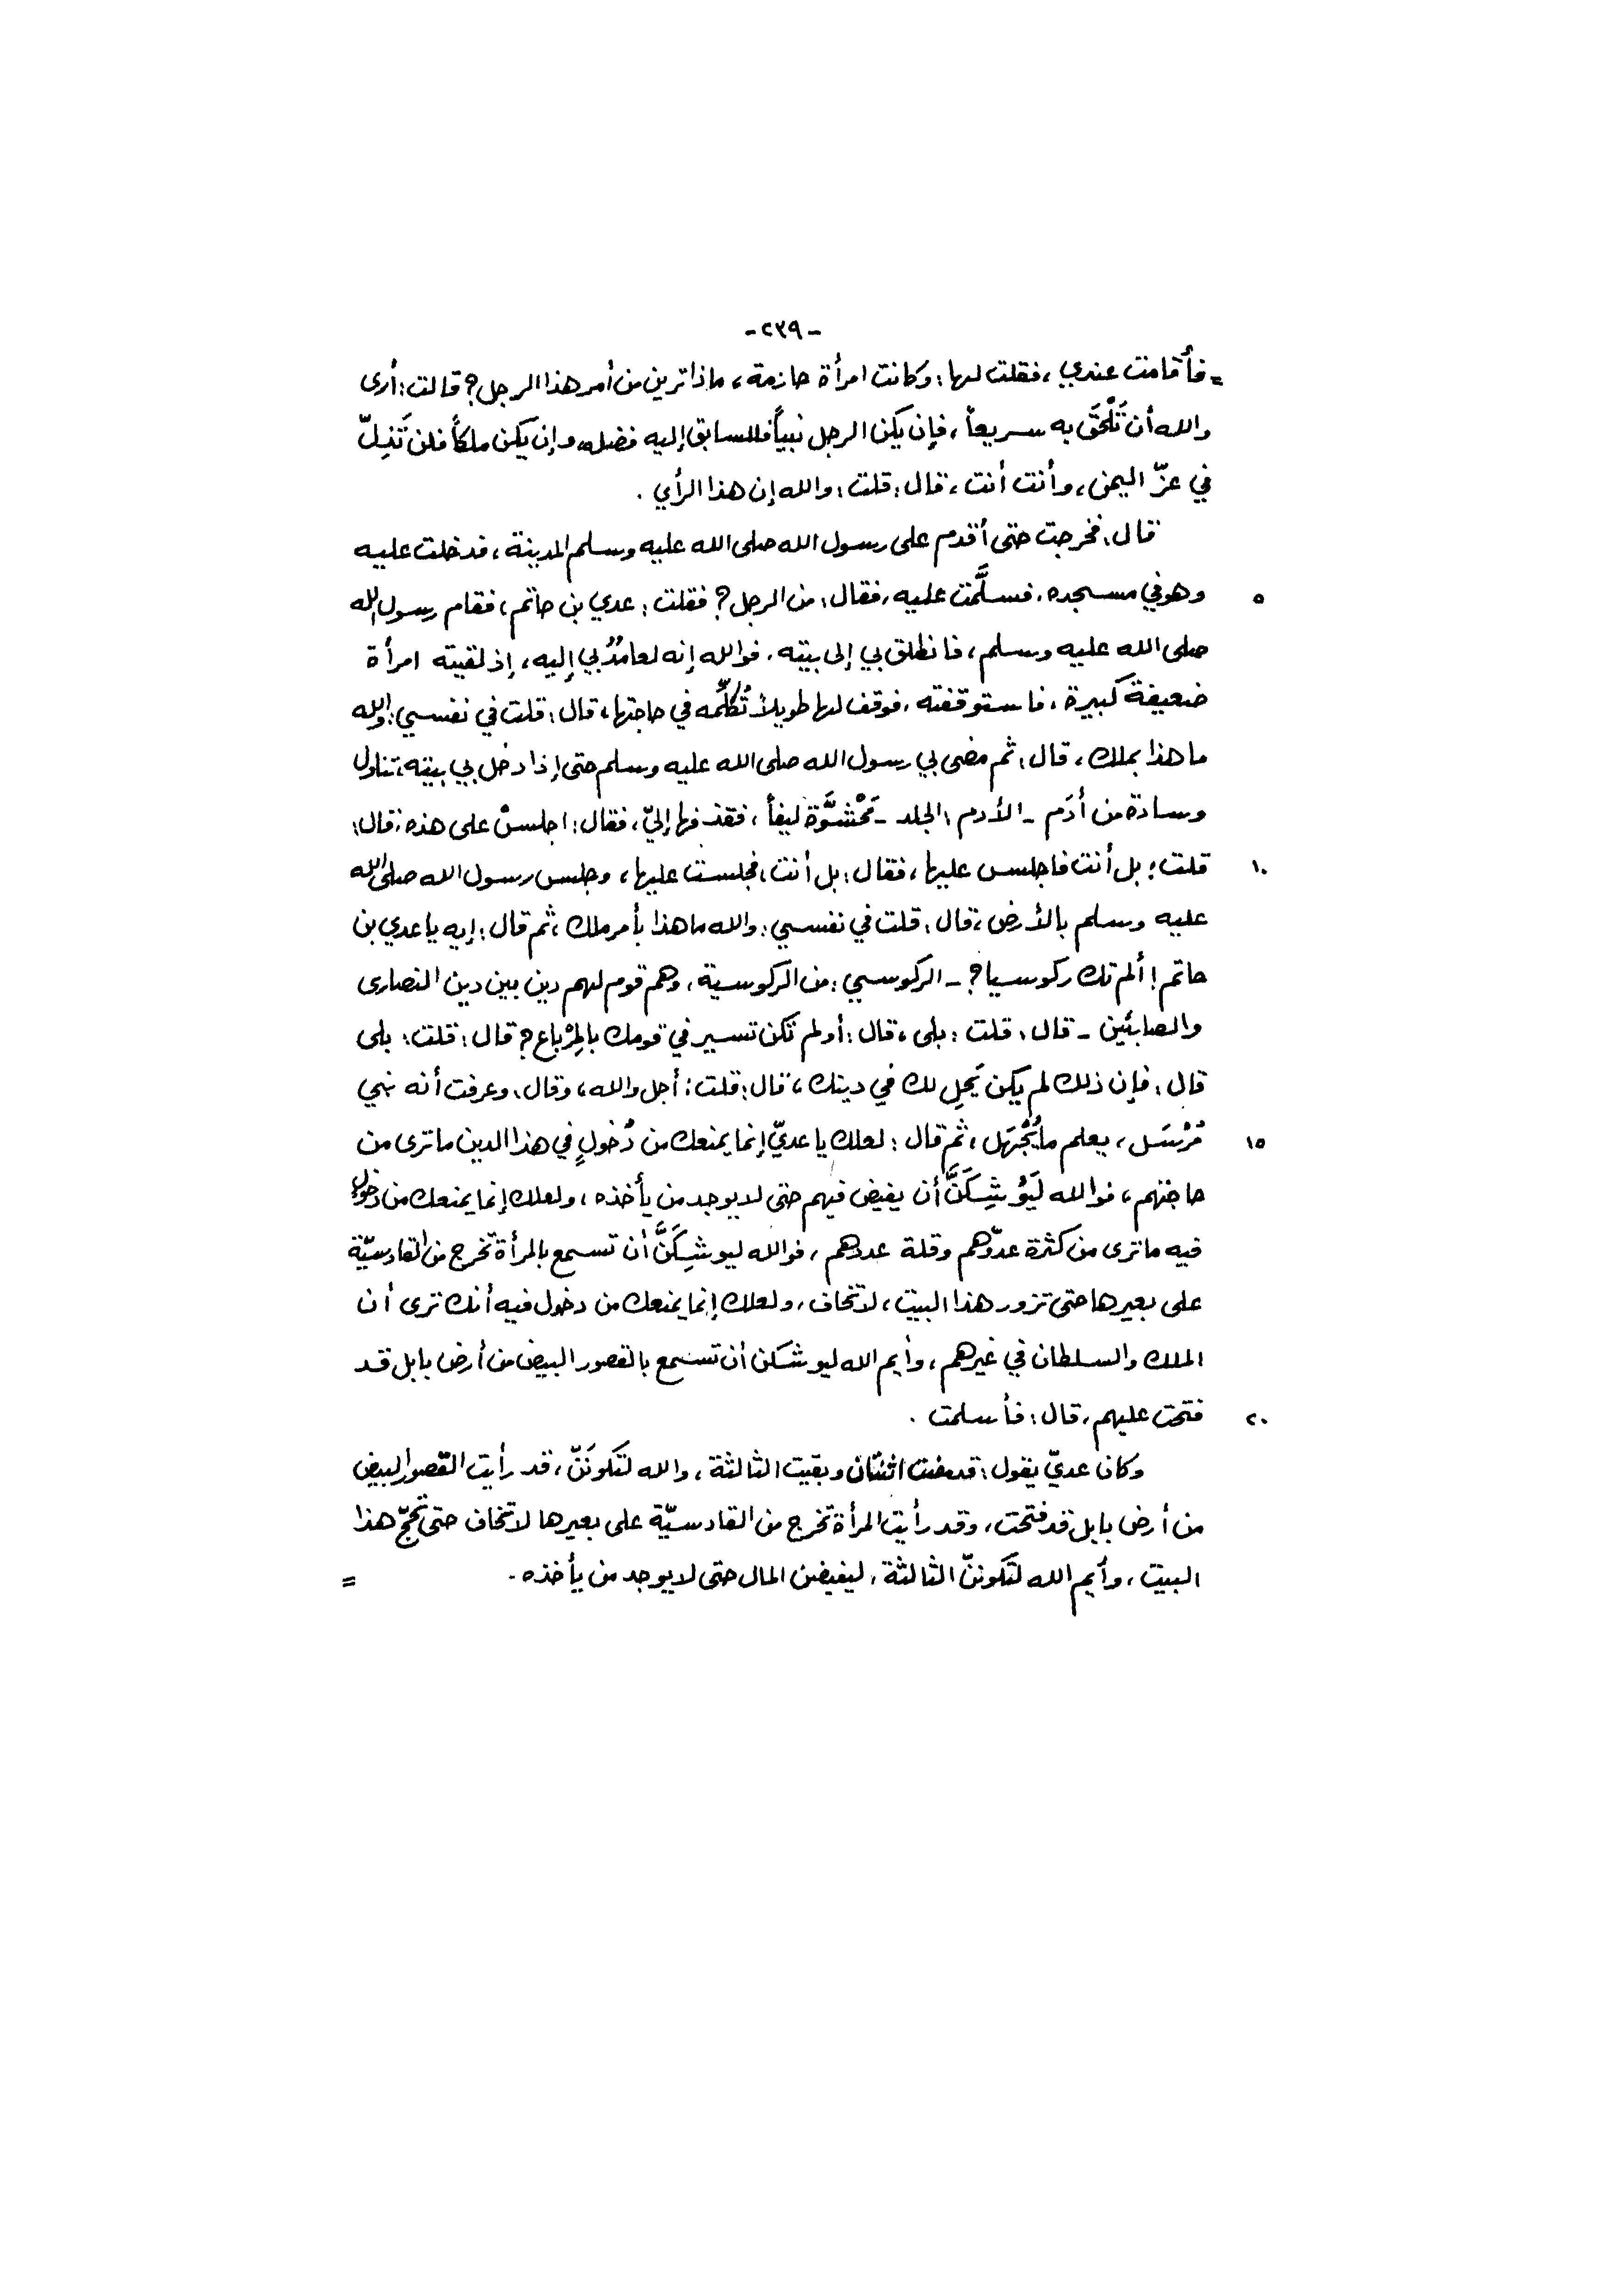 -٢٣٩-
= فأقامت عندي، فقلت لها: وكانت امرأة حازمة، ماذا ترين من أمر هذا الرجل؟ قالت: أرى
والله أن تَلْحَقَ به سريعاً، فإن يكن الرجل نبياً فللسابق إليه فضله، وإن يكن ملكاً فلن تَذِلّ
في عزّ اليمن، وأنت أنت، قال: قلت: والله إن هذا الرأي.
قال: فخرجت حتى أقدم على رسول الله صلى الله عليه وسلم المدينة، فدخلت عليه
٥ وهو في مسجده. فسلَّمت عليه، فقال: من الرجل؟ فقلت: عدي بن حاتم، فقام رسول الله
صلى الله عليه وسلم، فانطلق بي إلى بيته. فوالله إنه لعامدٌ بي إليه، إذ لقيته امرأة
ضعيفة كبيرة، فاستوقفته، فوقف لها طويلاً تُكلِّمه في حاجتها، قال: قلت في نفسي: والله
ما هذا بملك، قال: ثم مضى بي رسول الله صلى الله عليه وسلم حتى إذا دخل بي بيته، تناول
وسادة من أدَم - الأدم: الجلد - مَحْشوَّة ليفاً، فقذفها إليّ، فقال: اجلسْ على هذه، قال:
١٠ قلت: بل أنت فاجلس عليها، فقال: بل أنت، فجلست عليها، وجلس رسول الله صلى الله
عليه وسلم بالأرض، قال: قلت في نفسي: والله ما هذا بأمر ملك، ثم قال: إيه يا عدي بن
حاتم! ألم تك ركوسيا؟ - الركوسي: من الركوسية، وهم قوم لهم دين بين دين النصارى
والصابئين - قال: قلت: بلى، قال: أولم تكن تسير في قومك بالمِرْباع؟ قال: قلت: بلى
قال: فإن ذلك لم يكن يَحِل لك في دينك، قال: قلت: أجل والله، وقال: وعرفت أنه نبي
١٥ مُرْسَل، يعلم ما يُجْهَل، ثم قال: لعلك يا عديّ إنما يمنعك من دُخولٍ في هذا الدين ما ترى من
حاجتهم، فوالله لَيُوْشِكَنَّ أن يفيض فيهم حتى لا يوجد من يأخذه، ولعلك إنما يمنعك من دخولٍ
فيه ما ترى من كثرة عدّوهم وقلة عددهم، فوالله ليوشِكَنَّ أن تسمع بالمرأة تخرج من القادسيّة
على بعيرها حتى تزور هذا البيت، لا تخاف، ولعلك إنما يمنعك من دخول فيه أنك ترى أن
الملك والسلطان في غيرهم، وأيم الله ليوشكن أن تسمع بالقصور البيض من أرض بابل قد
٢٠ فتحت عليهم، قال: فأسلمت.
وكان عديّ يقول: قد مضت اثنتان وبقيت الثالثة، والله لتكونَنّ، قد رأيت القصور البيض
من أرض بابل قد فتحت، وقد رأيت المرأة تخرج من القادسيّة على بعيرها لا تخاف حتى تحجّ هذا
البيت، وأيم الله لتكوننّ الثالثة، ليفيضن المال حتى لا يوجد من يأخذه. =